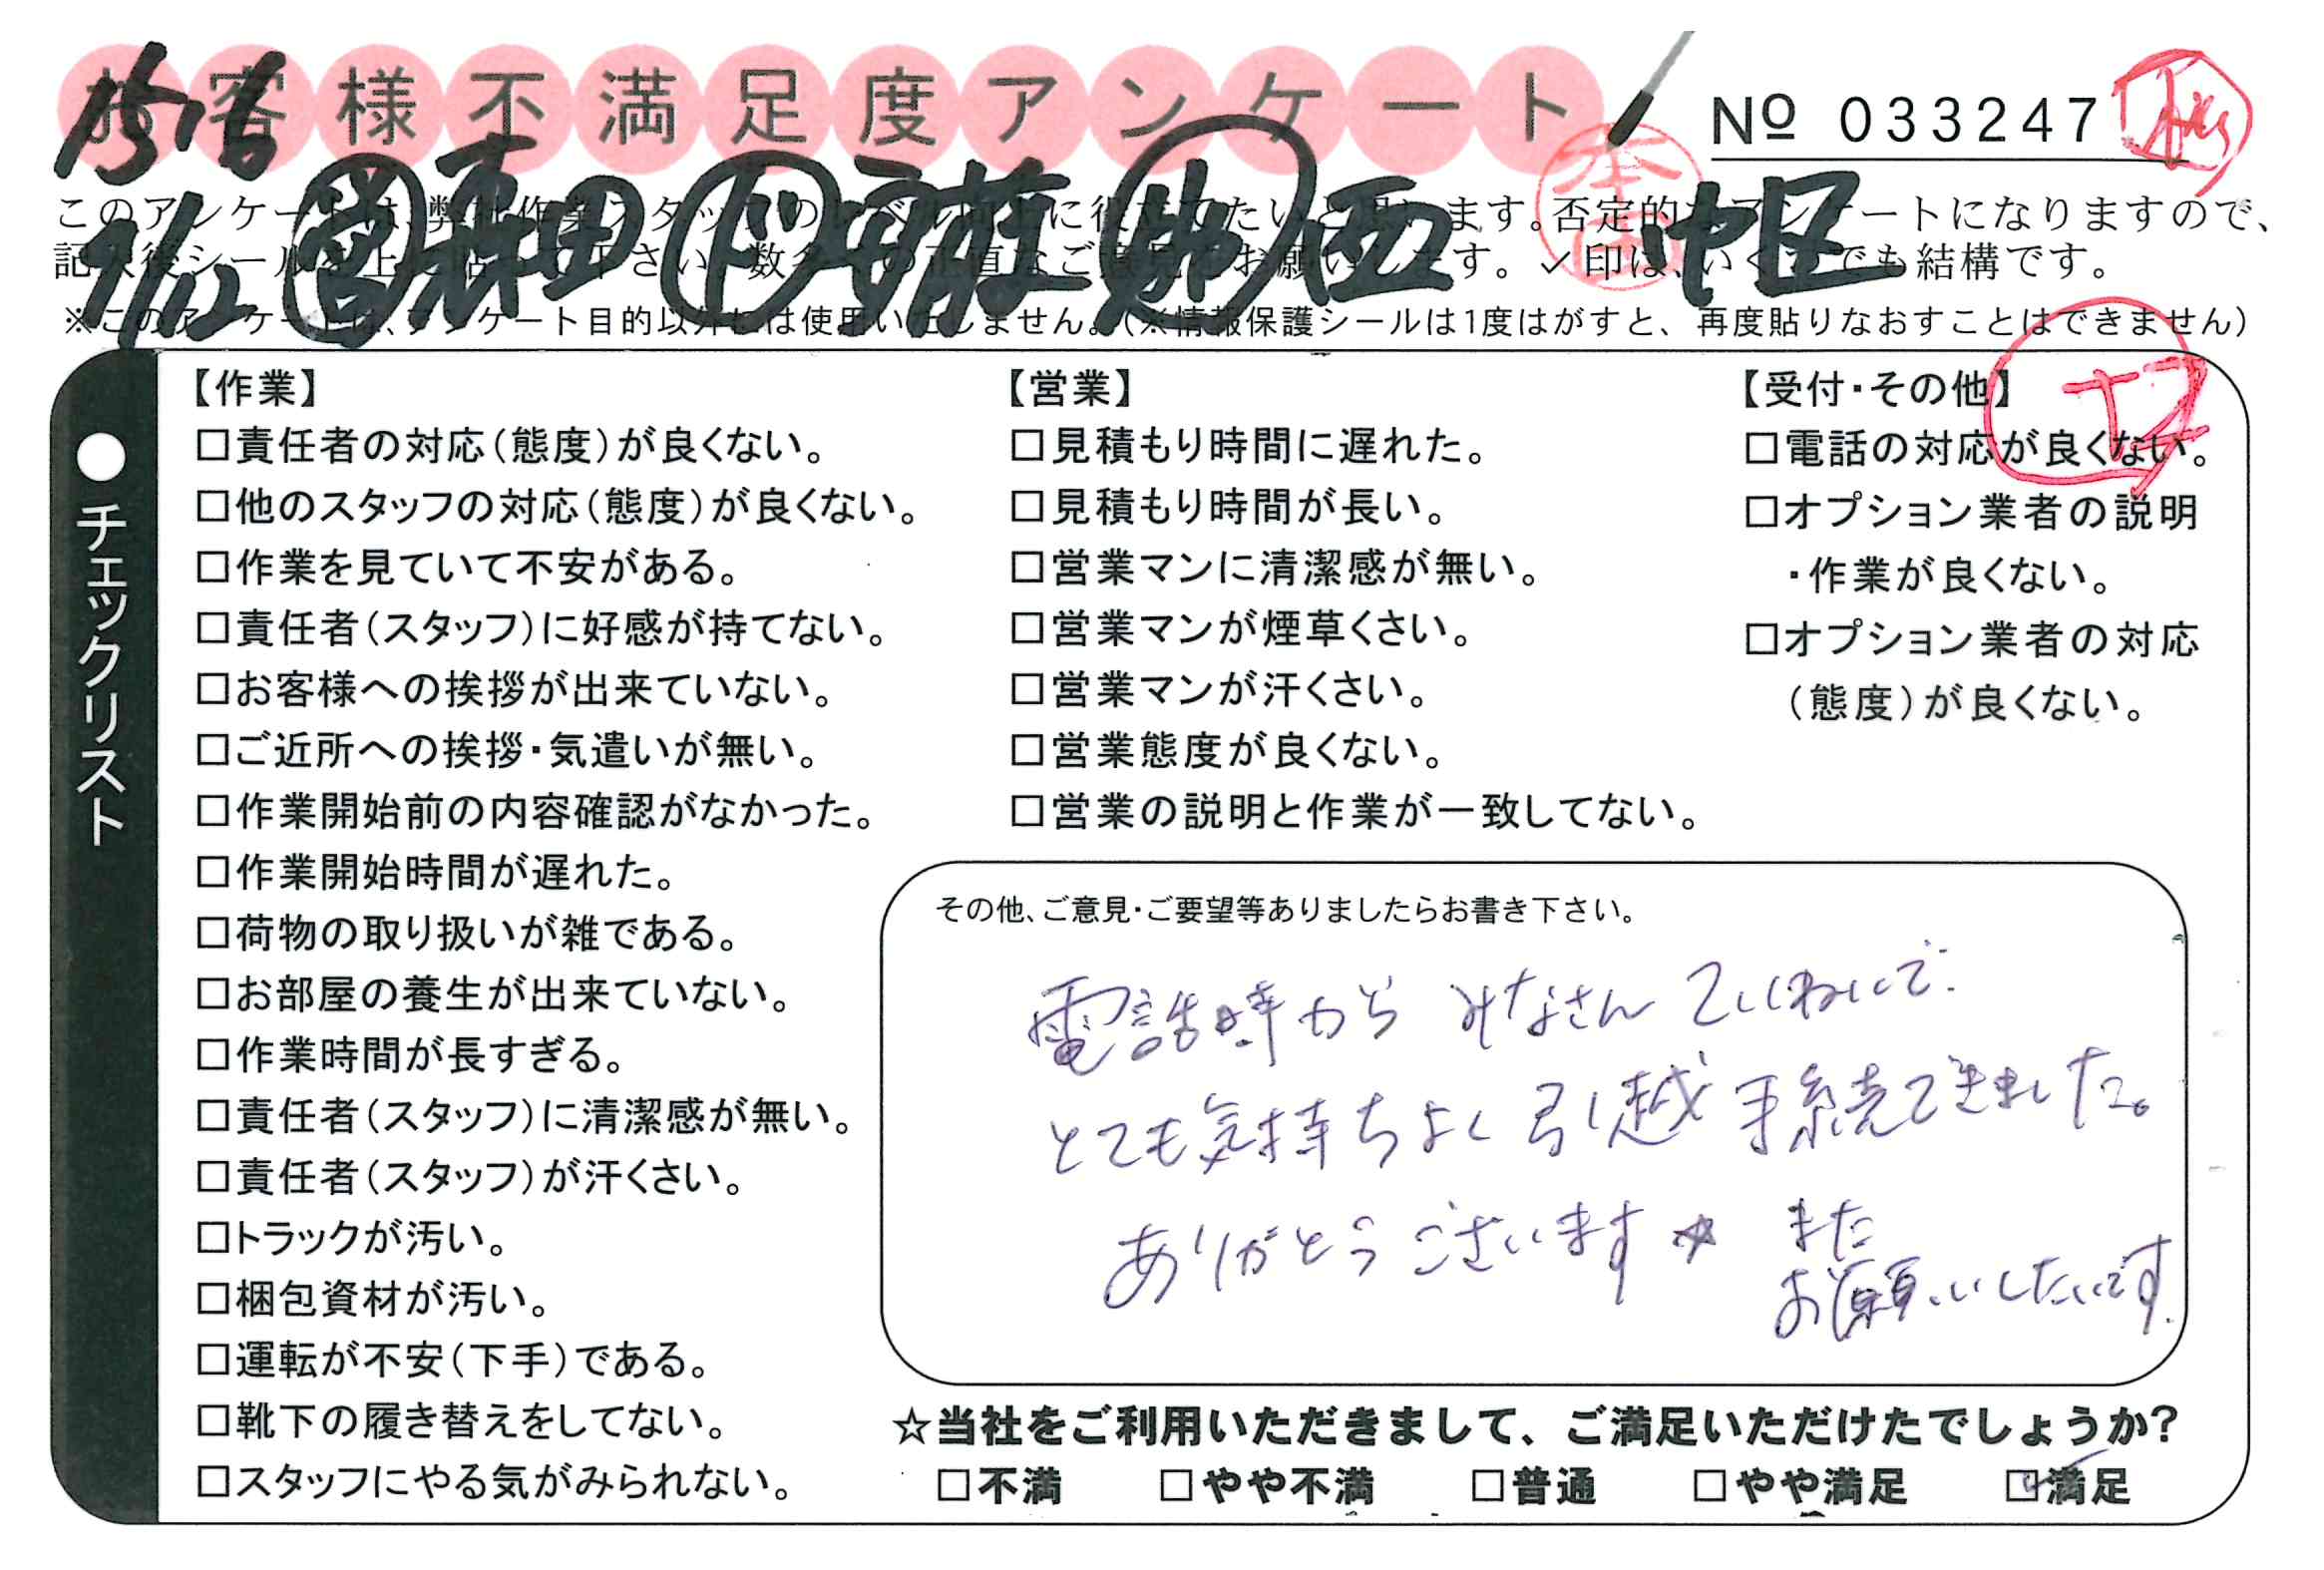 お客様不満足度アンケート
№ 033247
1518
9/12 営 森田 ド 斎藤 助 西 中区
本田
このアンケートは、弊社作業スタッフのレベル向上に役立てたいと思います。否定的なアンケートになりますので、
記入後シールを上に貼って下さい。数多くの正直なご意見をお願いします。✓印は、いくつでも結構です。
※このアンケートは、アンケート目的以外には使用いたしません。(※情報保護シールは1度はがすと、再度貼りなおすことはできません)
●チェックリスト
【作業】
□責任者の対応(態度)が良くない。
□他のスタッフの対応(態度)が良くない。
□作業を見ていて不安がある。
□責任者(スタッフ)に好感が持てない。
□お客様への挨拶が出来ていない。
□ご近所への挨拶・気遣いが無い。
□作業開始前の内容確認がなかった。
□作業開始時間が遅れた。
□荷物の取り扱いが雑である。
□お部屋の養生が出来ていない。
□作業時間が長すぎる。
□責任者(スタッフ)に清潔感が無い。
□責任者(スタッフ)が汗くさい。
□トラックが汚い。
□梱包資材が汚い。
□運転が不安(下手)である。
□靴下の履き替えをしてない。
□スタッフにやる気がみられない。
【営業】
□見積もり時間に遅れた。
□見積もり時間が長い。
□営業マンに清潔感が無い。
□営業マンが煙草くさい。
□営業マンが汗くさい。
□営業態度が良くない。
□営業の説明と作業が一致してない。
【受付・その他】
□電話の対応が良くない。
□オプション業者の説明
・作業が良くない。
□オプション業者の対応
(態度)が良くない。
その他、ご意見・ご要望等ありましたらお書き下さい。
電話時から みなさん ていねいで
とても気持ちよく 引越 手続できました。
ありがとうございます☆ また
お願いしたいです。
☆当社をご利用いただきまして、ご満足いただけたでしょうか?
□不満 □やや不満 □普通 □やや満足 ☑満足